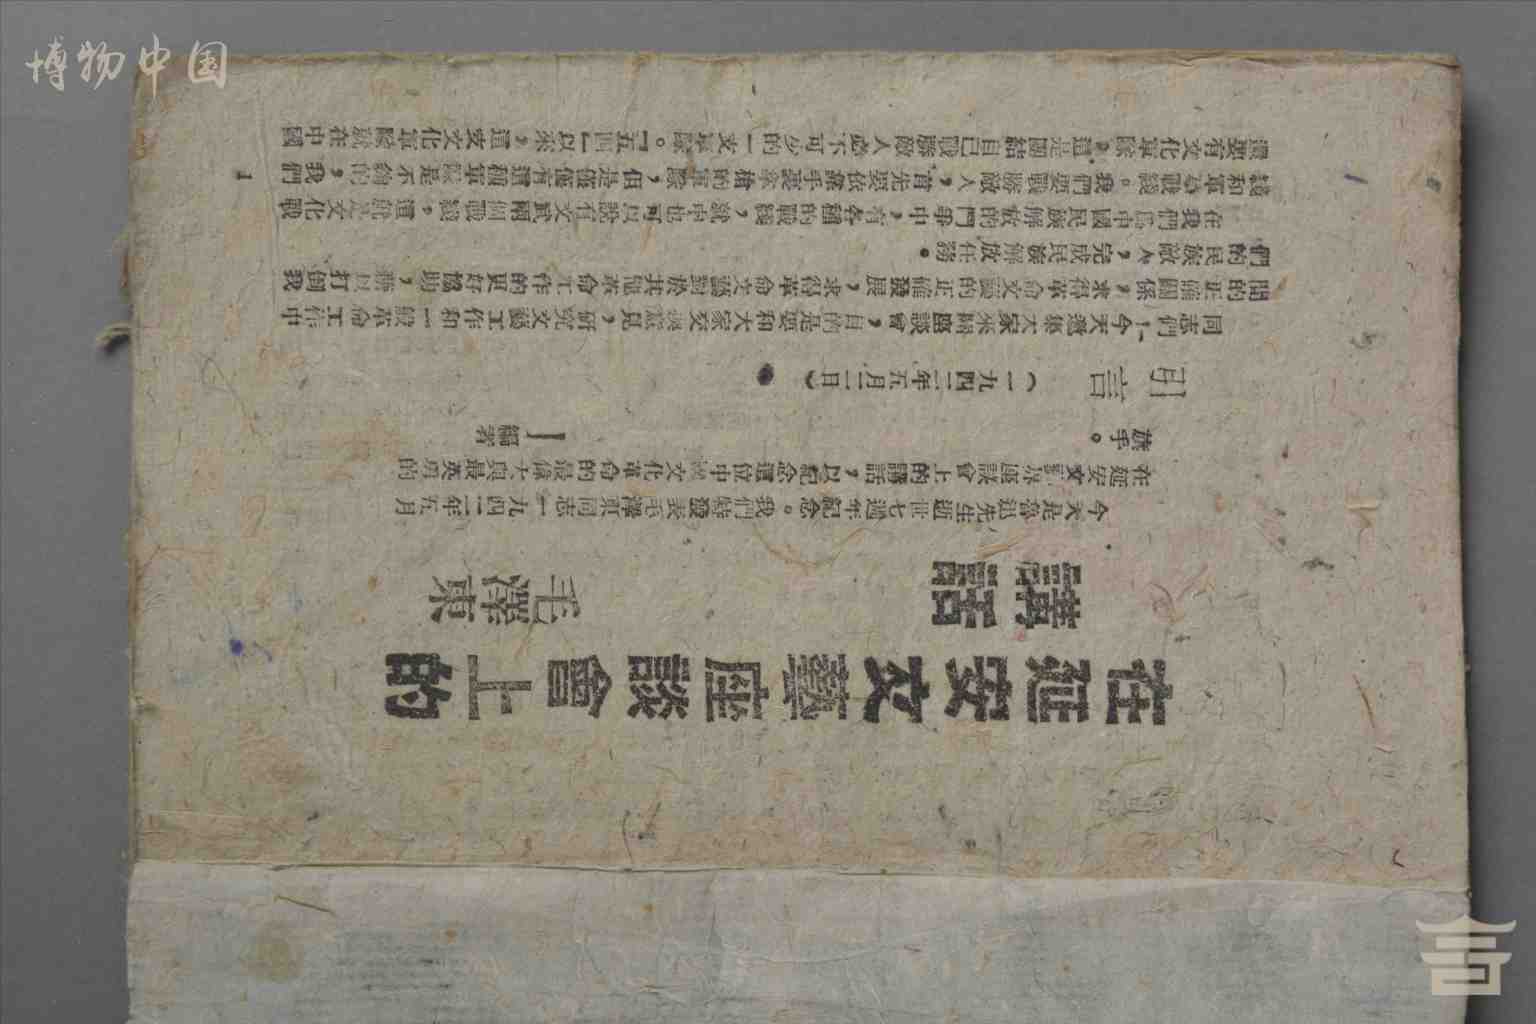 在延安文藝座談會上的
講話
毛澤東
今天是魯迅先生逝世七週年紀念。我們特發表毛澤東同志一九四二年五月
在延安文藝界座談會上的講話,以紀念這位中國文化革命的最偉大與最英勇的
旗手。
——編者
引言
(一九四二年五月二日)
同志們!今天邀集大家來開座談會,目的是要和大家交換意見,研究文藝工作和一般革命工作中
間的正確關係,求得革命文藝的正確發展,求得革命文藝對於其他革命工作的更好協助,藉以打倒我
們的民族敵人,完成民族解放任務。
在我們爲中國民族解放的鬥爭中,有各種的戰線,就中也可以說有文武兩個戰線,這就是文化戰
線和軍事戰線。我們要戰勝敵人,首先要依靠手裏拿槍的軍隊,但是僅僅有這種軍隊是不夠的,我們
還要有文化軍隊,這是團結自己戰勝敵人必不可少的一支軍隊。「五四」以來,這支文化軍隊就在中國
1
博物中国